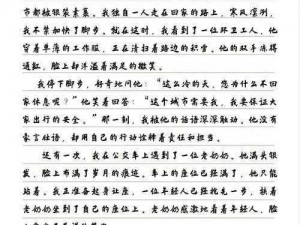 市都被银装素裹。我独自一人走在回家的路上，寒风凛冽，
我不禁加快了脚步。就在这时，我看到了一位环卫工人，他
穿着单薄的工作服，正在清扫着路边的积雪。他的双手冻得
通红，脸上却洋溢着满足的微笑。
我停下脚步，好奇地问他：“这么冷的天，您为什么不回
家休息呢？”他笑着回答：“这个城市需要我，我要保证大
家出行的安全。”那一刻，我被他的话语深深触动。他没有
豪言壮语，却用自己的行动诠释着责任和担当。
还有一次，我在公交车上遇到了一位老奶奶。她满头银
发，脸上布满了岁月的痕迹。车上的座位已经满了，她只能
站着。我正准备起身让座，一位年轻人已经抢先一步，扶着
老奶奶坐到了自己的座位上。老奶奶感激地看着年轻人，脸